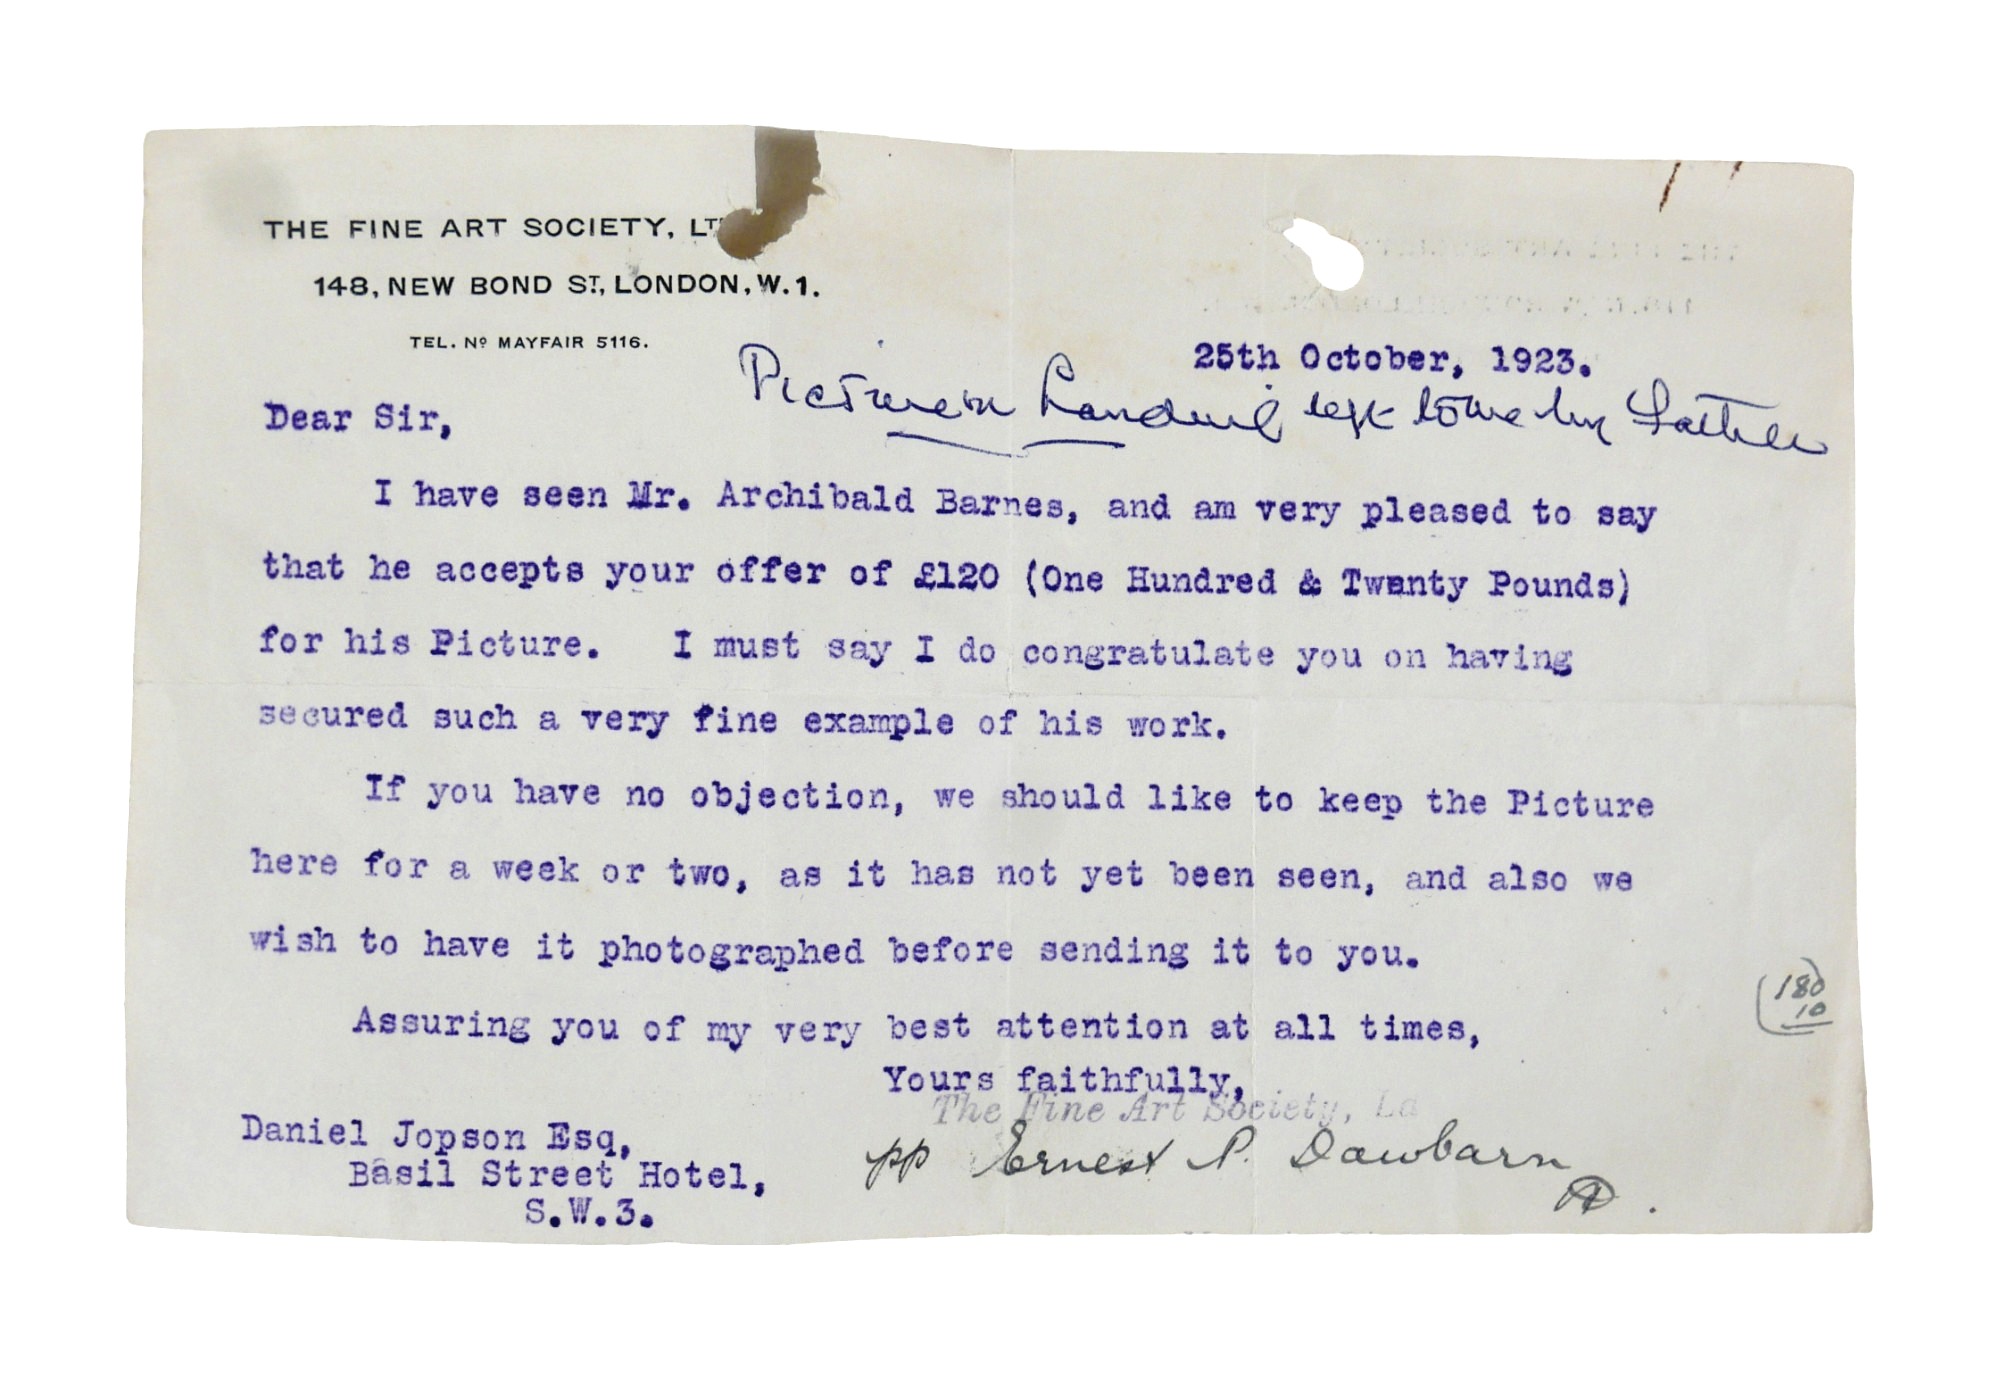 THE FINE ART SOCIETY, LTD
148, NEW BOND ST, LONDON, W.1.
TEL. Nº MAYFAIR 5116.
25th October, 1923.
Picture in Landing left to me by Father
Dear Sir,
I have seen Mr. Archibald Barnes, and am very pleased to say
that he accepts your offer of £120 (One Hundred & Twenty Pounds)
for his Picture. I must say I do congratulate you on having
secured such a very fine example of his work.
If you have no objection, we should like to keep the Picture
here for a week or two, as it has not yet been seen, and also we
wish to have it photographed before sending it to you.
180
10
Assuring you of my very best attention at all times,
Yours faithfully,
The Fine Art Society, Ld
pp Ernest P. Dawbarn
Daniel Jopson Esq,
Basil Street Hotel,
S.W.3.